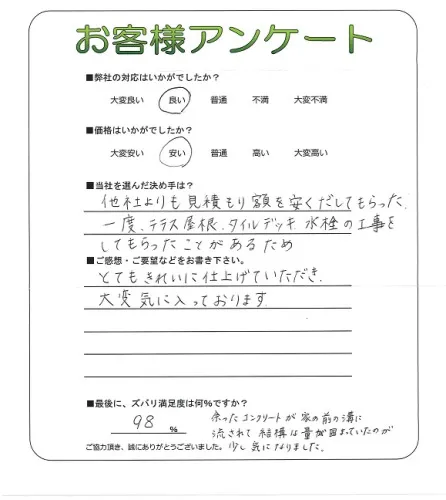 お客様アンケート
■弊社の対応はいかがでしたか?
大変良い 良い 普通 不満 大変不満
■価格はいかがでしたか?
大変安い 安い 普通 高い 大変高い
■当社を選んだ決め手は?
他社よりも見積もり額を安くだしてもらった.
一度、テラス屋根、タイルデッキ 水栓の工事を
してもらったことがあるため
■ご感想・ご要望などをお書き下さい。
とてもきれいに仕上げていただき.
大変気に入っております
■最後に、ズバリ満足度は何%ですか?
98 %
余ったコンクリートが家の前の溝に
流されて結構な量が固まっていたのが
少し気になりました.
ご協力頂き、誠にありがとうございました。